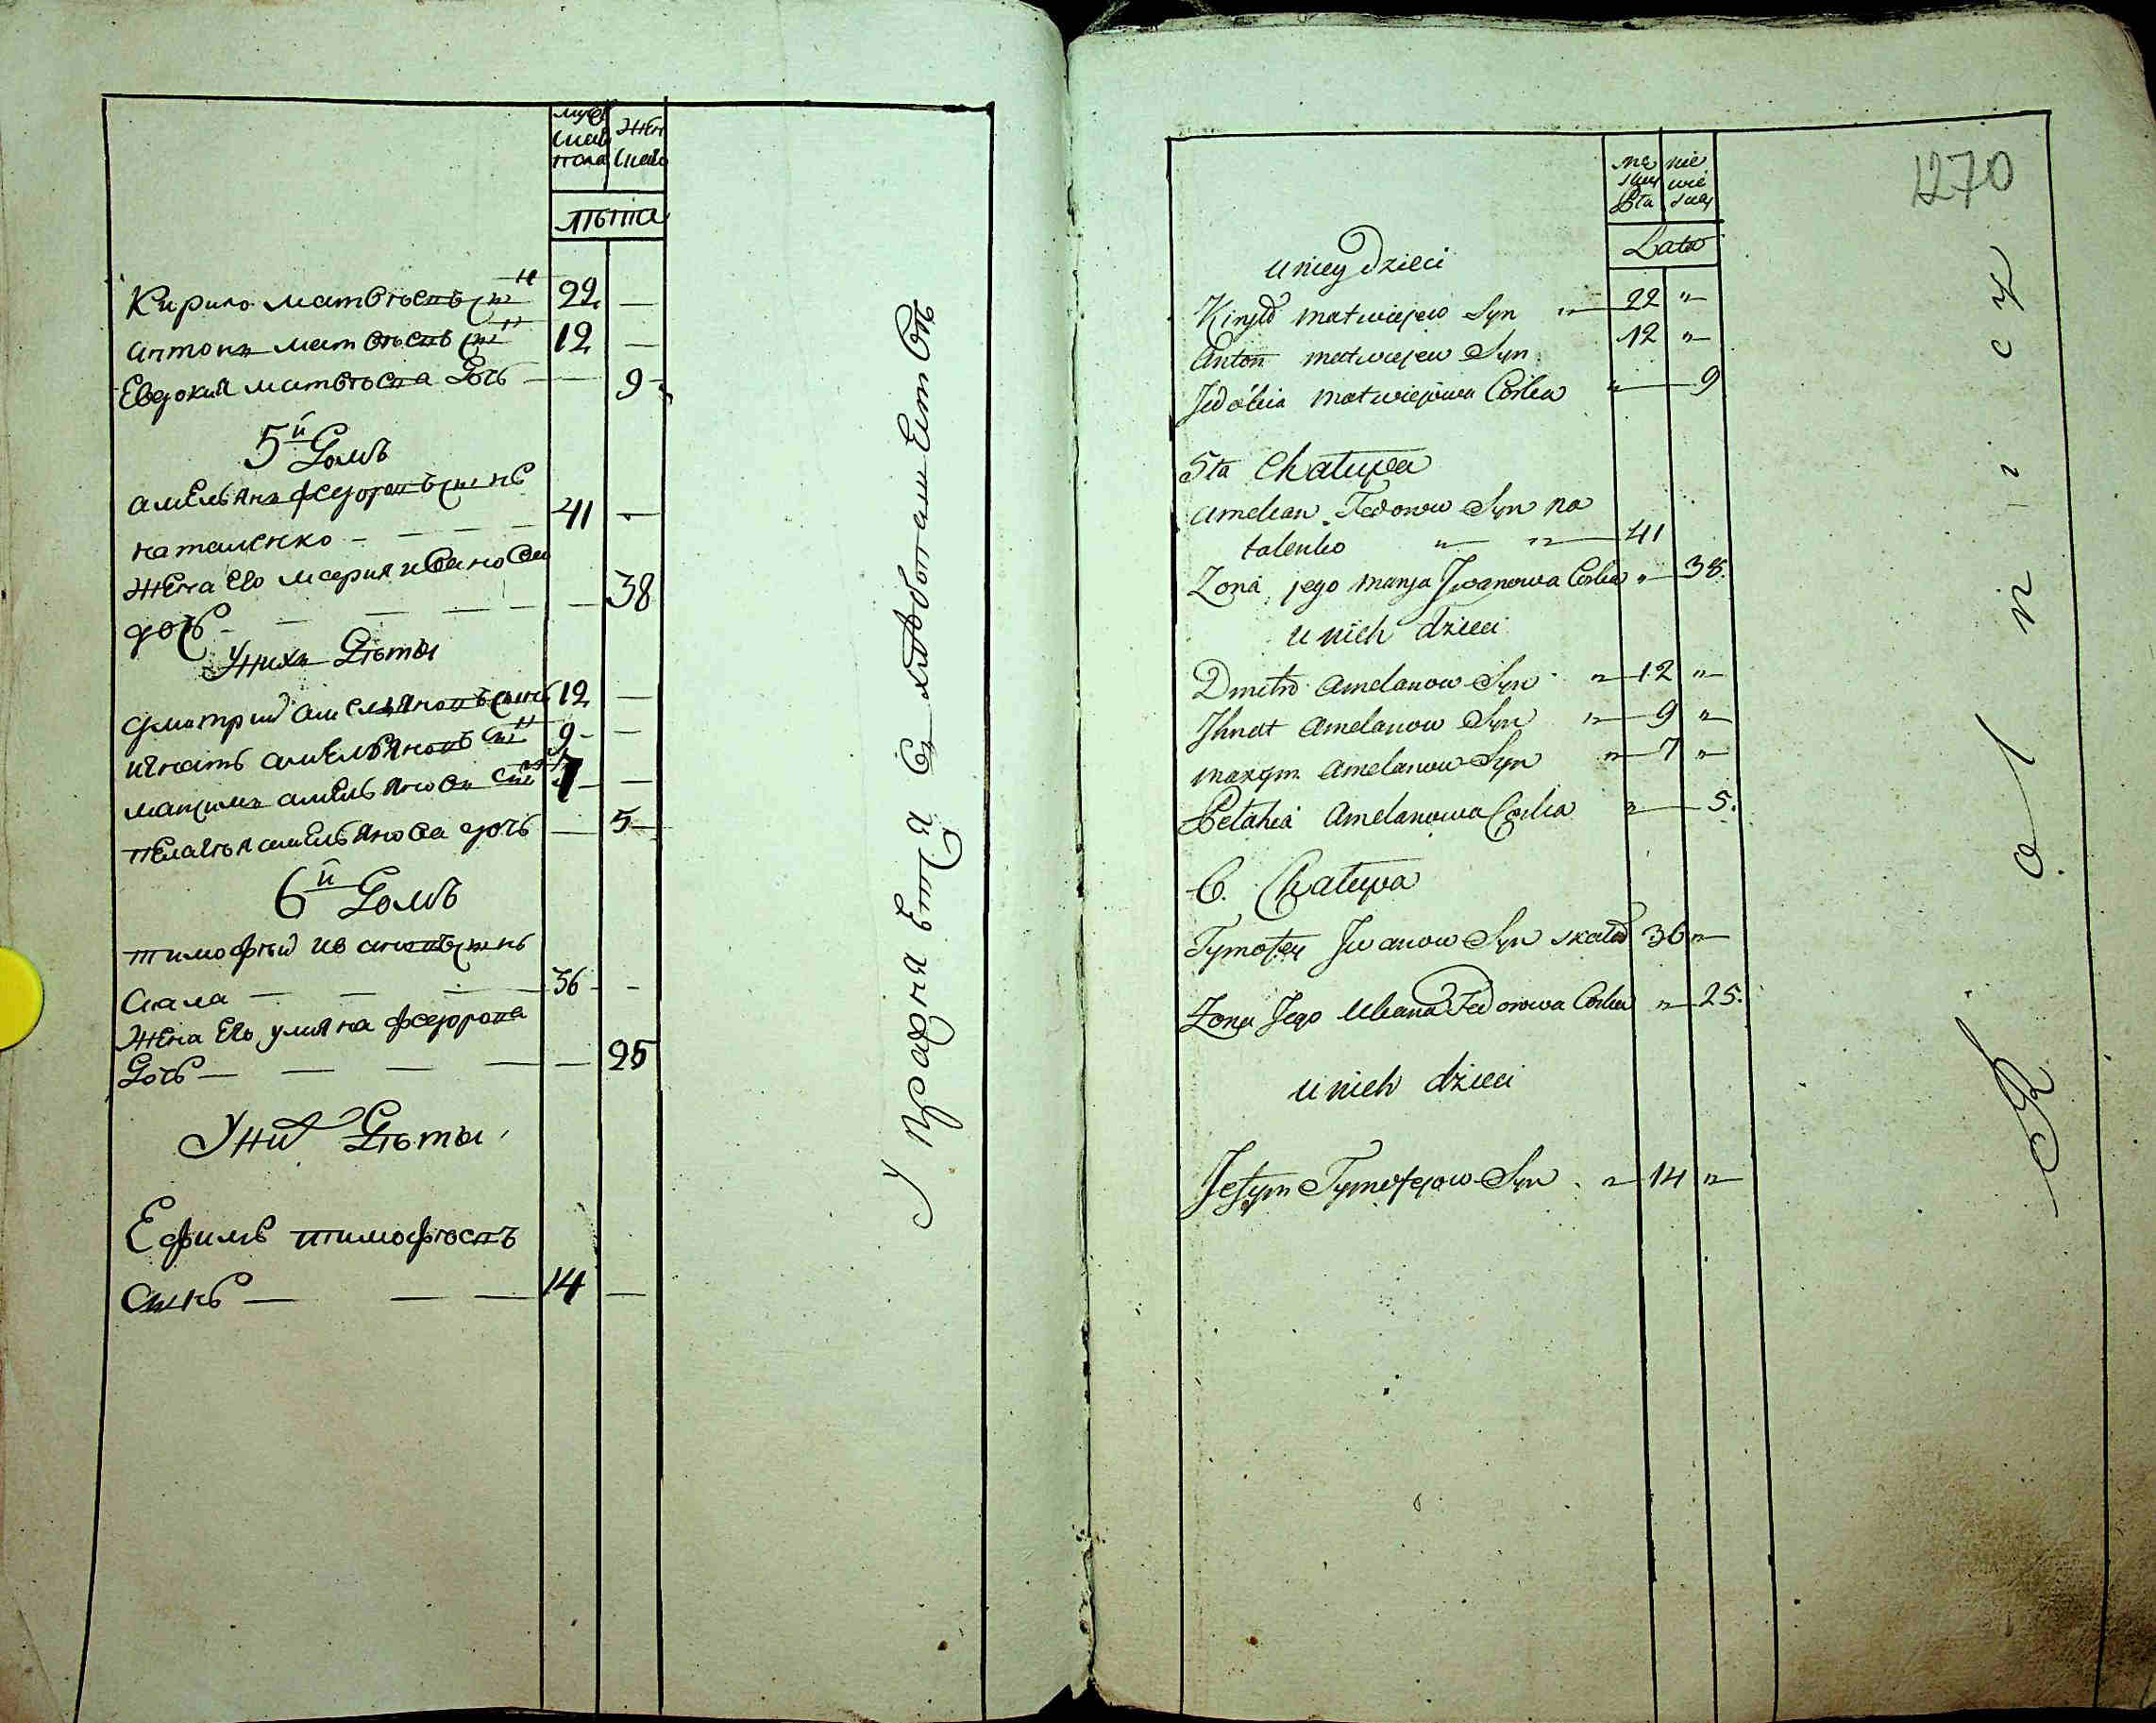 муж
скаго
пола
жен
скаго
лѣта
Кирило Матвѣевъ сынъ 22 —
Антонъ Матвѣевъ сынъ 12 —
Евдокия Матвѣева дочь — 9
5й Домъ
Амельянъ Федоровъ сынъ
Наталенко — — — 41 —
Жена Его Мария Иванова
дочь — — — — 38
У нихъ Дѣты
Дмитрий Амельяновъ сынъ 12 —
Игнатъ Амельяновъ сынъ 9 —
Максимъ Амельяновъ сынъ 7 —
Пелагѣя Амельянова дочь — 5
6й Домъ
Тимофѣй Ивановъ сынъ
Скала — — — 36 —
Жена Его Улияна Федорова
Дочь — — — — 25
У них Дѣты
Ефимъ Тимофѣевъ
Сынъ — — — 14 —
Упражняется въ хлѣбопашествѣ
1270
mę
skiey
płta
nie
wie
skiey
Lata
u niey dzieci
Kiryło Matwiejew Syn " 22 "
Anton Matwiejew Syn 12 "
Jedokia Matwiejowa Corka " 9
5ta Chałupa
Amelian Fedorow Syn Na
talenko " " 41
Zona jego Marya Jwanowa Corka " 38.
u nich dzieci
Dmitro Amelanow Syn " 12 "
Jhnat Amelanow Syn " 9 "
Maxym Amelanow Syn " 7 "
Pelahia Amelanowa Corka " 5.
6. Chałupa
Tymofey Jwanow Syn Skała 36 "
Zona Jego Uliana Fedorowa Corka " 25.
u nich dzieci
Jefym Tymofejow Syn " 14 "
Rolnicy